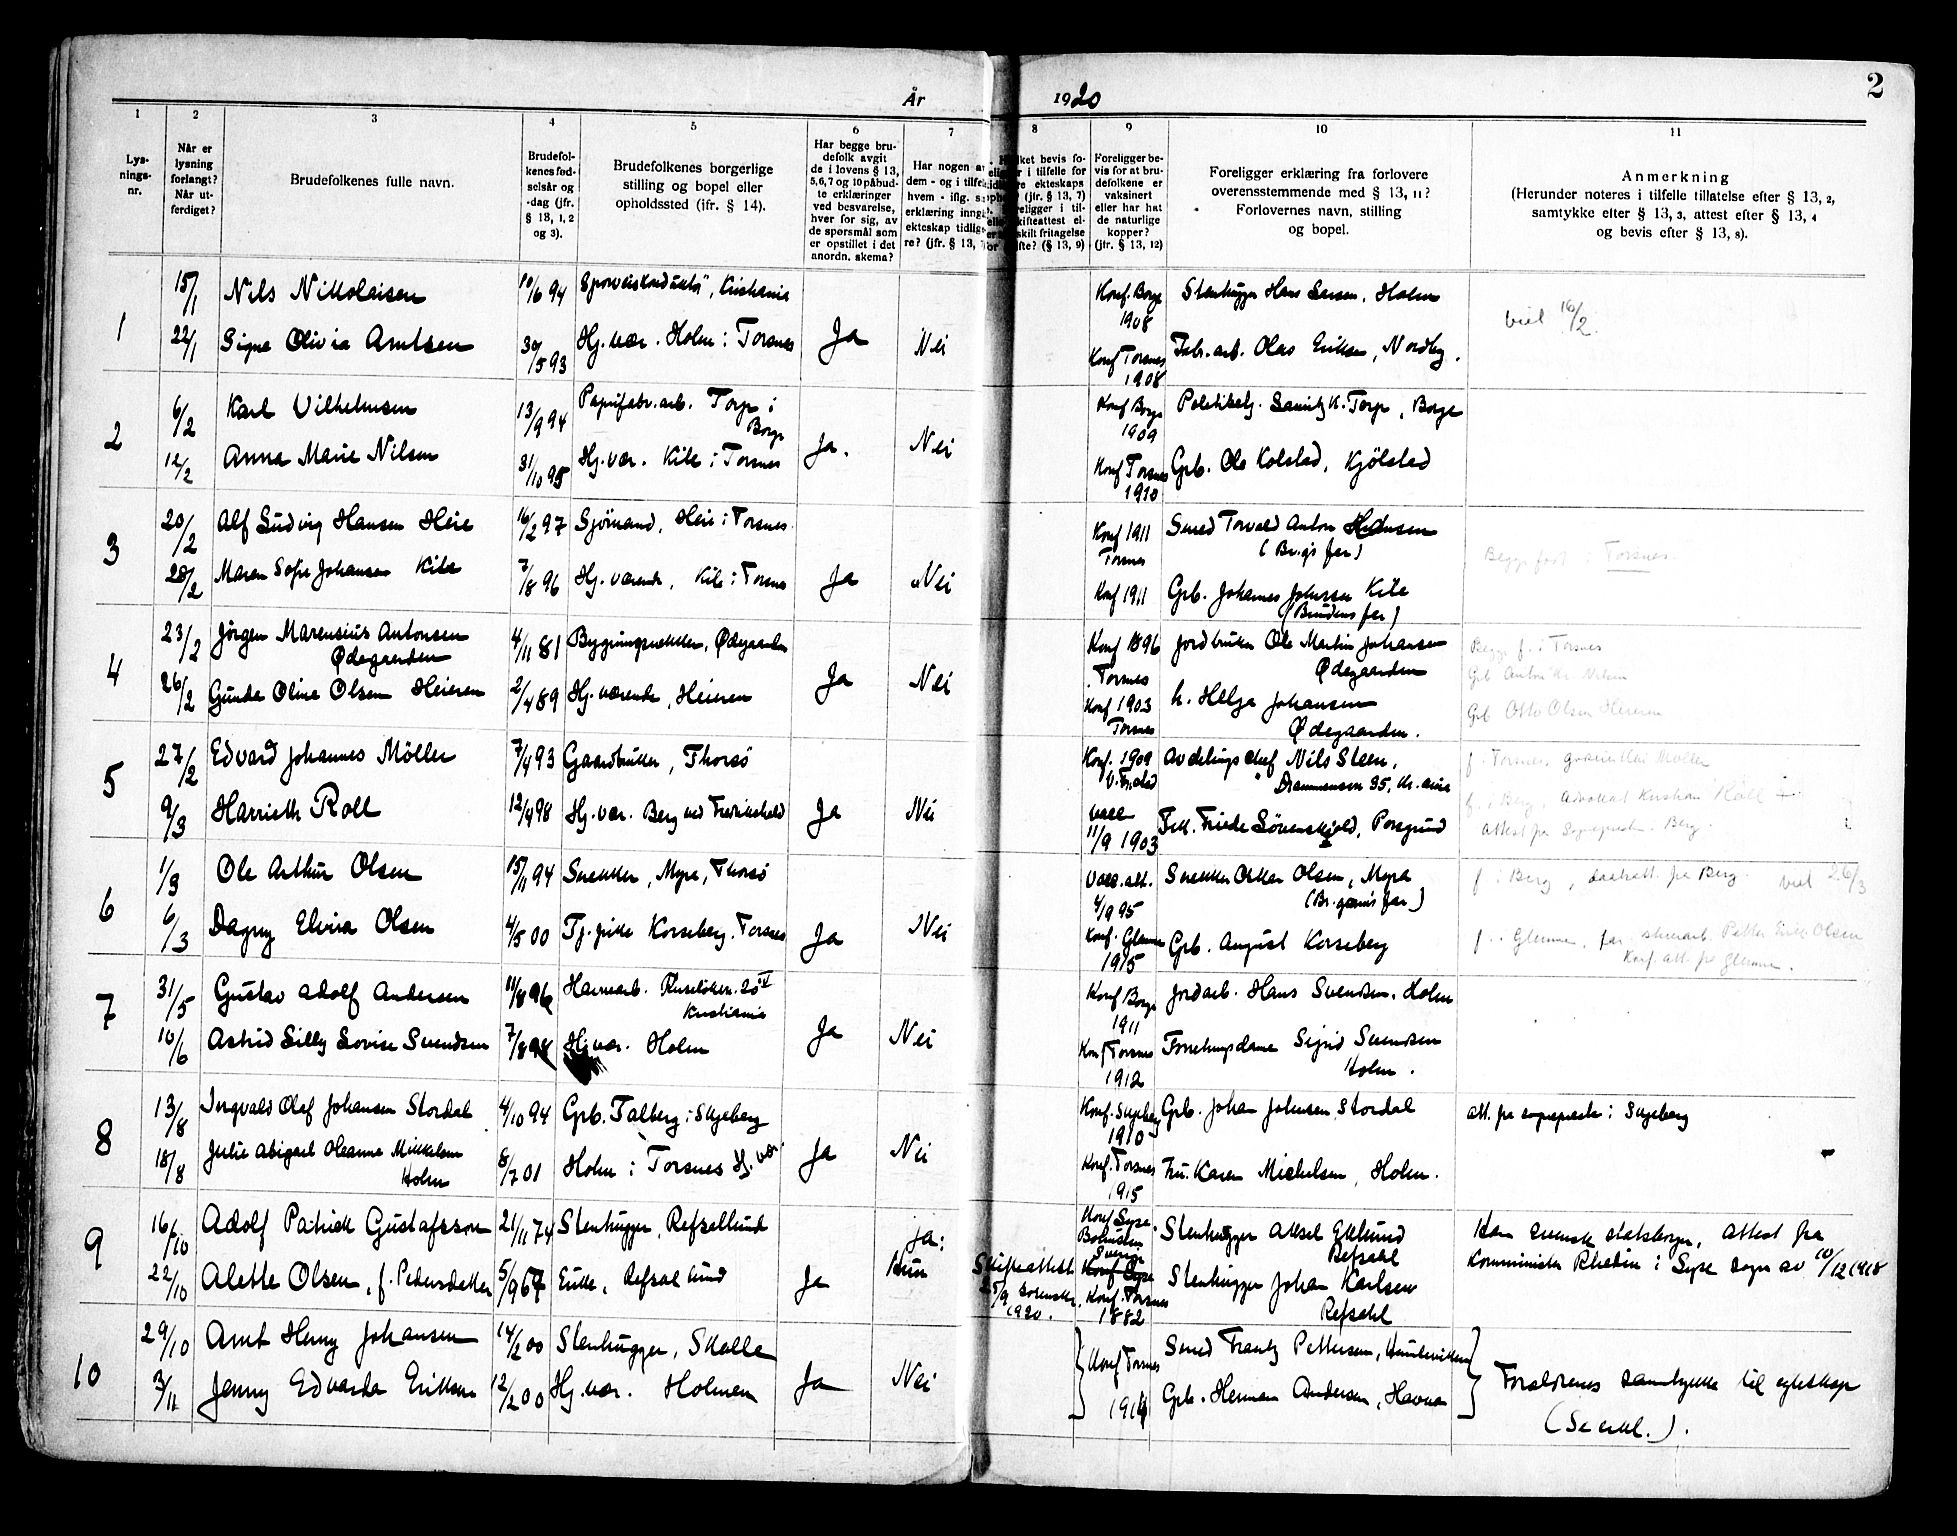 2
År 1920
1
2
3
4
5
6
7
8
9
10
11
Lys-
nings-
nr.
Når er
lysning
forlangt?
Når ut-
ferdiget?
Brudefolkenes fulle navn.
Brudefol-
kenes fød-
selsår og
-dag (jfr.
§ 13, 1, 2
og 3).
Brudefolkenes borgerlige
stilling og bopel eller
opholdssted (jfr. § 14).
Har begge bru-
defolk avgit
de i lovens § 13,
5, 6, 7 og 10 påbud-
te erklæringer
ved besvarelse,
hver for sig, av
de spørsmål som
er opstillet i det
anordn. skema?
Har nogen av
dem - og i tilfelle
hvem - iflg.
erklæring inngått
ekteskap tidlige-
re? (jfr. § 13,
ket bevis fo-
r i tilfelle for
re ekteskaps
(jfr. § 13, 7)
religger i til-
skifteattest el-
skilt fritagelse
fte? (§ 13, 9)
Foreligger be-
vis for at bru-
defolkene er
vaksinert
eller har hat
de naturlige
kopper?
(jfr. § 13, 12)
Foreligger erklæring fra forlovere
overensstemmende med § 13, 11?
Forlovernes navn, stilling
og bopel.
Anmerkning
(Herunder noteres i tilfelle tillatelse efter § 13, 2,
samtykke efter § 13, 3, attest efter § 13, 4
og bevis efter § 13, 8).
1
15/1 Nils Nikolaisen 10/6 94 Sporveiskonduktør, Kristiania Konf. Borge 1908 Stenhugger Hans Larsen, Holm viel 16/2.
22/1 Signe Olivia Arntsen 30/5 93 Hj. vær. Holm i Torsnes Ja Nei Konf Torsnes 1908 Fabr. arb. Olaus Eriksen, Nordby.
2
6/2 Karl Vilhelmsen 13/9 94 Papirfabr. arb. Torp i Borge Konf Borge 1909 Politibetj. K. Torp, Borge
12/2 Anna Marie Nilsen 31/10 95 Hj. vær. Kile i Torsnes Ja. Nei Konf Torsnes 1910 Grb. Ole Kolstad, Kjølstad
3
20/2 Alf Ludvig Hansen Heie 16/2 97 Sjømand, Heie i Torsnes Konf 1911 Torsnes Smed Torvald Anton Hansen (Br.g's far) Begge født i Torsnes.
28/2 Maren Sofie Johansen Kile 7/8 96 Hj. værende, Kile i Torsnes Ja Nei Konf 1911 Grb. Johannes Johansen Kile (Brudens far)
4
23/2 Jørgen Marensius Antonsen Ødegaarden 4/11 81 Bygningssnekker, Ødegaarden Konf 1896 Torsnes Jordbruker Ole Martin Johansen Ødegaarden Begge f. i Torsnes
Grb Anton Kr. Nilsen
26/2 Gunda Oline Olsen Heieren 2/4 89 Hj. værende, Heieren Ja Nei Konf 1903 Torsnes h. Helga Johansen Ødegaarden. Grb Otto Olsen Heieren
5
27/2 Edvard Johannes Möller 7/4 93 Gaardbruker, Thorsø Konf. 1909 Avdelingschef Nils Steen, Drammensvn 95, Kr.ania f. Torsnes, Möller
9/3 Harrieth Roll 12/4 98 Hj. vær. Berg ved Fredrikshald Ja Nei vacc 11/9 1903 Frk. Friede Sørenskjold, Porsgrund f. i Berg, Advokat Kristian Roll
attest fra Sogneprest i Berg
6
1/3 Ole Arthur Olsen 15/11 94 Snekker, Myra, Thorsø Vacc. att. 4/9 95 Snekker Oskar Olsen, Myra (Br.gom's far) f. i Berg, daabsatt. fra Berg. viel 26/3
6/3 Dagny Elvira Olsen 4/5 00 Tj. pike Korseberg, Torsnes Ja Nei Konf. Glemme 1915 Grb. August Korseberg f. i Glemme, far Petter Olsen
Konf. att. fra Glemme.
7
31/5 Gustav Adolf Andersen 11/8 96 Havnearb. 20 IV Kristiania Konf Borge 1911 Jordarb. Hans Svendsen, Holm
10/6 Astrid Lilly Lovise Svendsen 7/8 98 Hj. vær. Holm Ja Nei Konf Torsnes 1912 Forretningsdame Sigrid Svendsen Holm.
8
13/8 Ingvald Olaf Johansen Stordal 4/10 94 Grb. Talberg i Skjeberg Konf. Skjeberg 1910 Grb. Johan Johnsen Stordal att. fra sogneprest i Skjeberg
18/8 Julie Abigael Oleanne Mikkelsen Holm 8/7 01 Holm i Torsnes Hj. vær. Ja Nei Konf. Torsnes 1915 Fru. Karen Michelsen, Holm.
9
16/10 Adolf Patrick Gustafsson 21/11 74 Stenhugger, Refsallund Ja: Konf Bohuslen Sverige Stenhugger Aksel Eklund Refsahl Han svensk statsborger, attest fra
22/10 Alette Olsen, f. Pedersdatter 5/9 67 Enke, Refsallund Ja Hun Skifteattest 25/9 sorenskr. 1920. Konf. Torsnes 1882 Stenhugger Johan Karlsen Refsahl Komminister Rhedin i sogn av 10/12 1918
10
29/10 Arnt Henry Johansen 14/2 00 Stenhugger, Skolle Konf Torsnes 1914 Smed Frantz Pettersen, Foreldrenes samtykke til egteskap
3/11 Jenny Edvarda Eriksen 12/2 00 Hj. vær. Holmen Ja Nei Grb. Herman Andersen, Havna (Se erkl.).